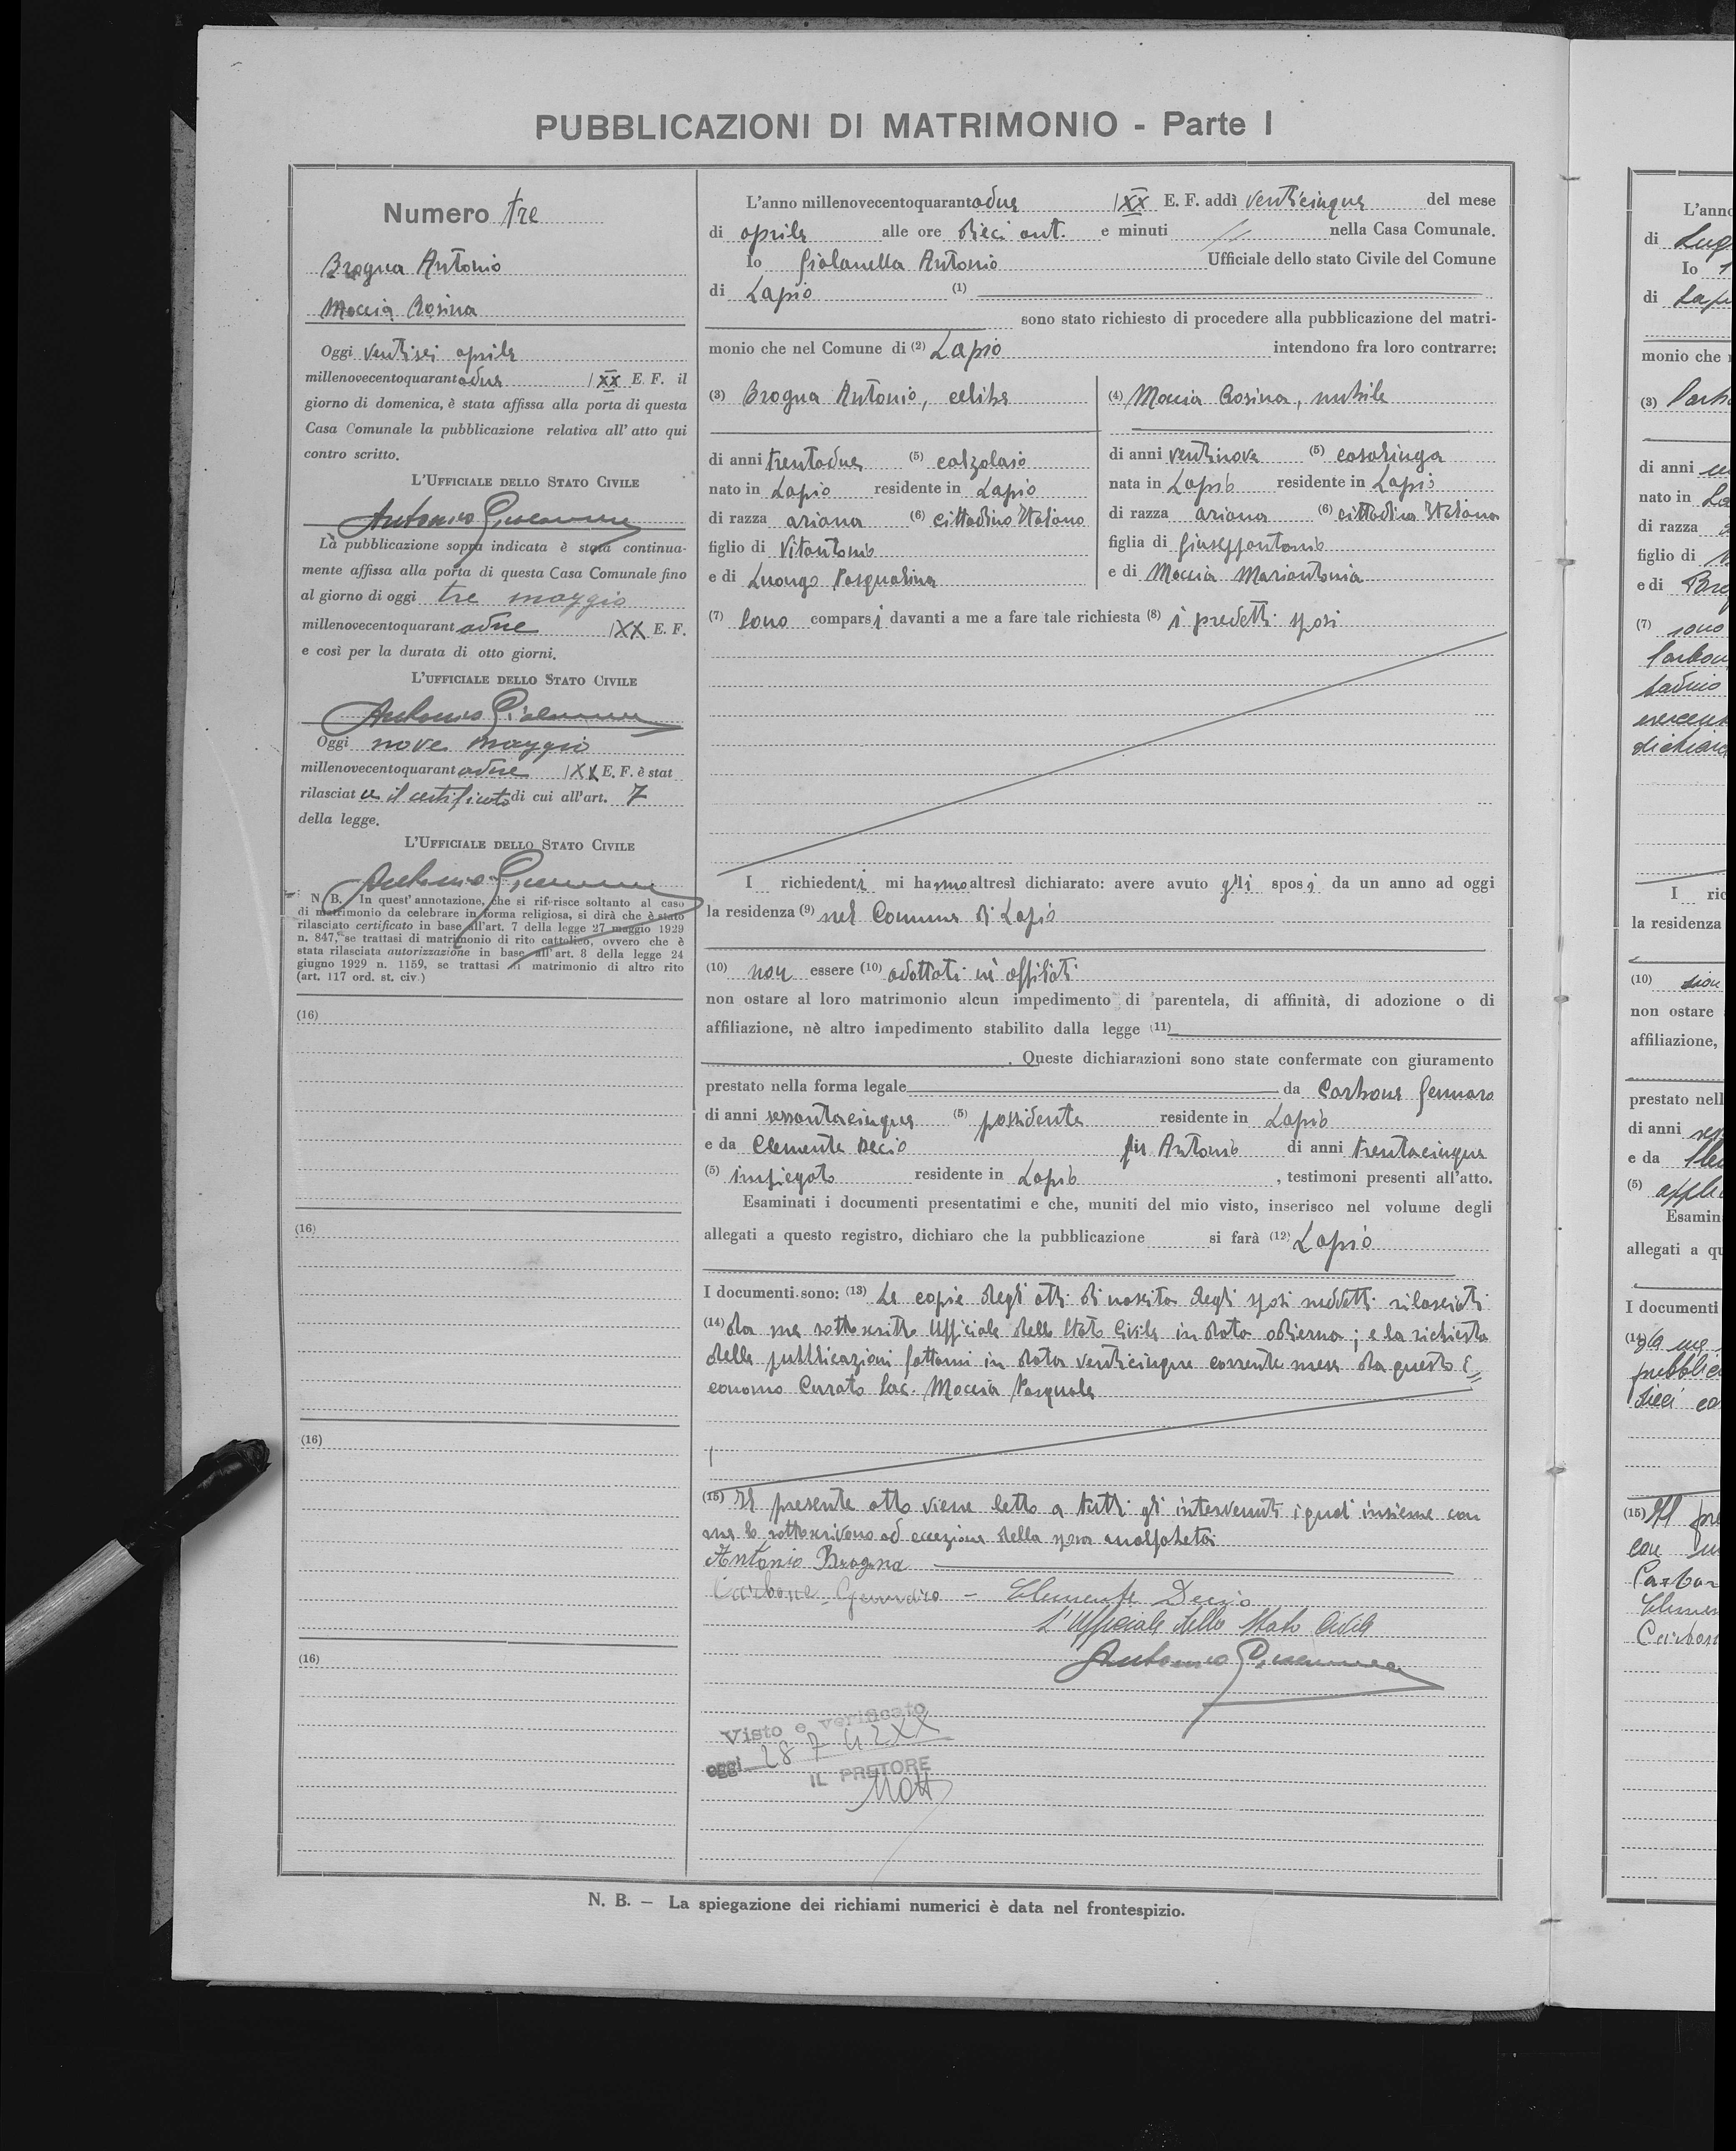 PUBBLICAZIONI DI MATRIMONIO - Parte I
Numero tre
Brogna Antonio
Moccia Rosina
Oggi ventisei aprile
millenovecentoquarantadue / XX E. F. il
giorno di domenica, è stata affissa alla porta di questa
Casa Comunale la pubblicazione relativa all' atto qui
contro scritto.
L'UFFICIALE DELLO STATO CIVILE
Antonio
La pubblicazione sopra indicata è stata continua-
mente affissa alla porta di questa Casa Comunale fino
al giorno di oggi tre maggio
millenovecentoquarantadue / XX E. F.
e così per la durata di otto giorni.
L'UFFICIALE DELLO STATO CIVILE
Antonio
Oggi nove maggio
millenovecentoquarantadue / XX E. F. è stat
rilasciato il certificato di cui all'art. 7
della legge.
L'UFFICIALE DELLO STATO CIVILE
Antonio
N. B. In quest' annotazione, che si riferisce soltanto al caso
di matrimonio da celebrare in forma religiosa, si dirà che è stato
rilasciato certificato in base all'art. 7 della legge 27 maggio 1929
n. 847, se trattasi di matrimonio di rito cattolico, ovvero che è
stata rilasciata autorizzazione in base all'art. 8 della legge 24
giugno 1929 n. 1159, se trattasi di matrimonio di altro rito
(art. 117 ord. st. civ.)
(16)
(16)
(16)
(16)
L'anno millenovecentoquarantadue / XX E. F. addì venticinque del mese
di aprile alle ore dieci ant. e minuti // nella Casa Comunale.
Io Giolanella Antonio Ufficiale dello stato Civile del Comune
di Lapio (1)
sono stato richiesto di procedere alla pubblicazione del matri-
monio che nel Comune di (2) Lapio intendono fra loro contrarre:
(3) Brogna Antonio, celibe
di anni trentadue (5) calzolaio
nato in Lapio residente in Lapio
di razza ariana (6) cittadino Italiano
figlio di Vitantonio
e di Luongo Pasqualina
(4) Moccia Rosina, nubile
di anni ventinove (5) casalinga
nata in Lapio residente in Lapio
di razza ariana (6) cittadina Italiana
figlia di Giuseppantonio
e di Moccia Mariantonia
(7) Sono comparsi davanti a me a fare tale richiesta (8) i predetti sposi
I richiedenti mi hanno altresì dichiarato: avere avuto gli sposi da un anno ad oggi
la residenza (9) nel Comune di Lapio
(10) non essere (10) adottati nè affiliati
non ostare al loro matrimonio alcun impedimento di parentela, di affinità, di adozione o di
affiliazione, nè altro impedimento stabilito dalla legge (11)
. Queste dichiarazioni sono state confermate con giuramento
prestato nella forma legale da Carbone Gennaro
di anni sessantacinque (5) possidente residente in Lapio
e da Clemente Decio fu Antonio di anni trentacinque
(5) impiegato residente in Lapio , testimoni presenti all'atto.
Esaminati i documenti presentatimi e che, muniti del mio visto, inserisco nel volume degli
allegati a questo registro, dichiaro che la pubblicazione si farà (12) Lapio
I documenti sono: (13) Le copie degli atti di nascita degli sposi suddetti rilasciati
(14) da me sottoscritto Ufficiale dello Stato Civile in data odierna; e la richiesta
delle pubblicazioni fattami in data venticinque corrente mese da questo E=
conomo Curato Sac. Moccia Pasquale
(15) Il presente atto viene letto a tutti gli intervenuti i quali insieme con
me lo sottoscrivono ad eccezione della sposa analfabeta
Antonio Brogna
Carbone Gennaro - Clemente Decio
L'Ufficiale dello Stato Civile
Antonio
Visto e verificato
oggi 28 7 42 XX
IL PRETORE
N. B. — La spiegazione dei richiami numerici è data nel frontespizio.
L'anno
di Lug
Io
di
monio che
(3)
di anni
nato in
di razza
figlio di
e di
(7) sono
I ric
la residenza
(10)
non ostare
affiliazione,
prestato nell
di anni
e da
(5)
Esamin
allegati a qu
I documenti
(14) da me
(15) Il pre